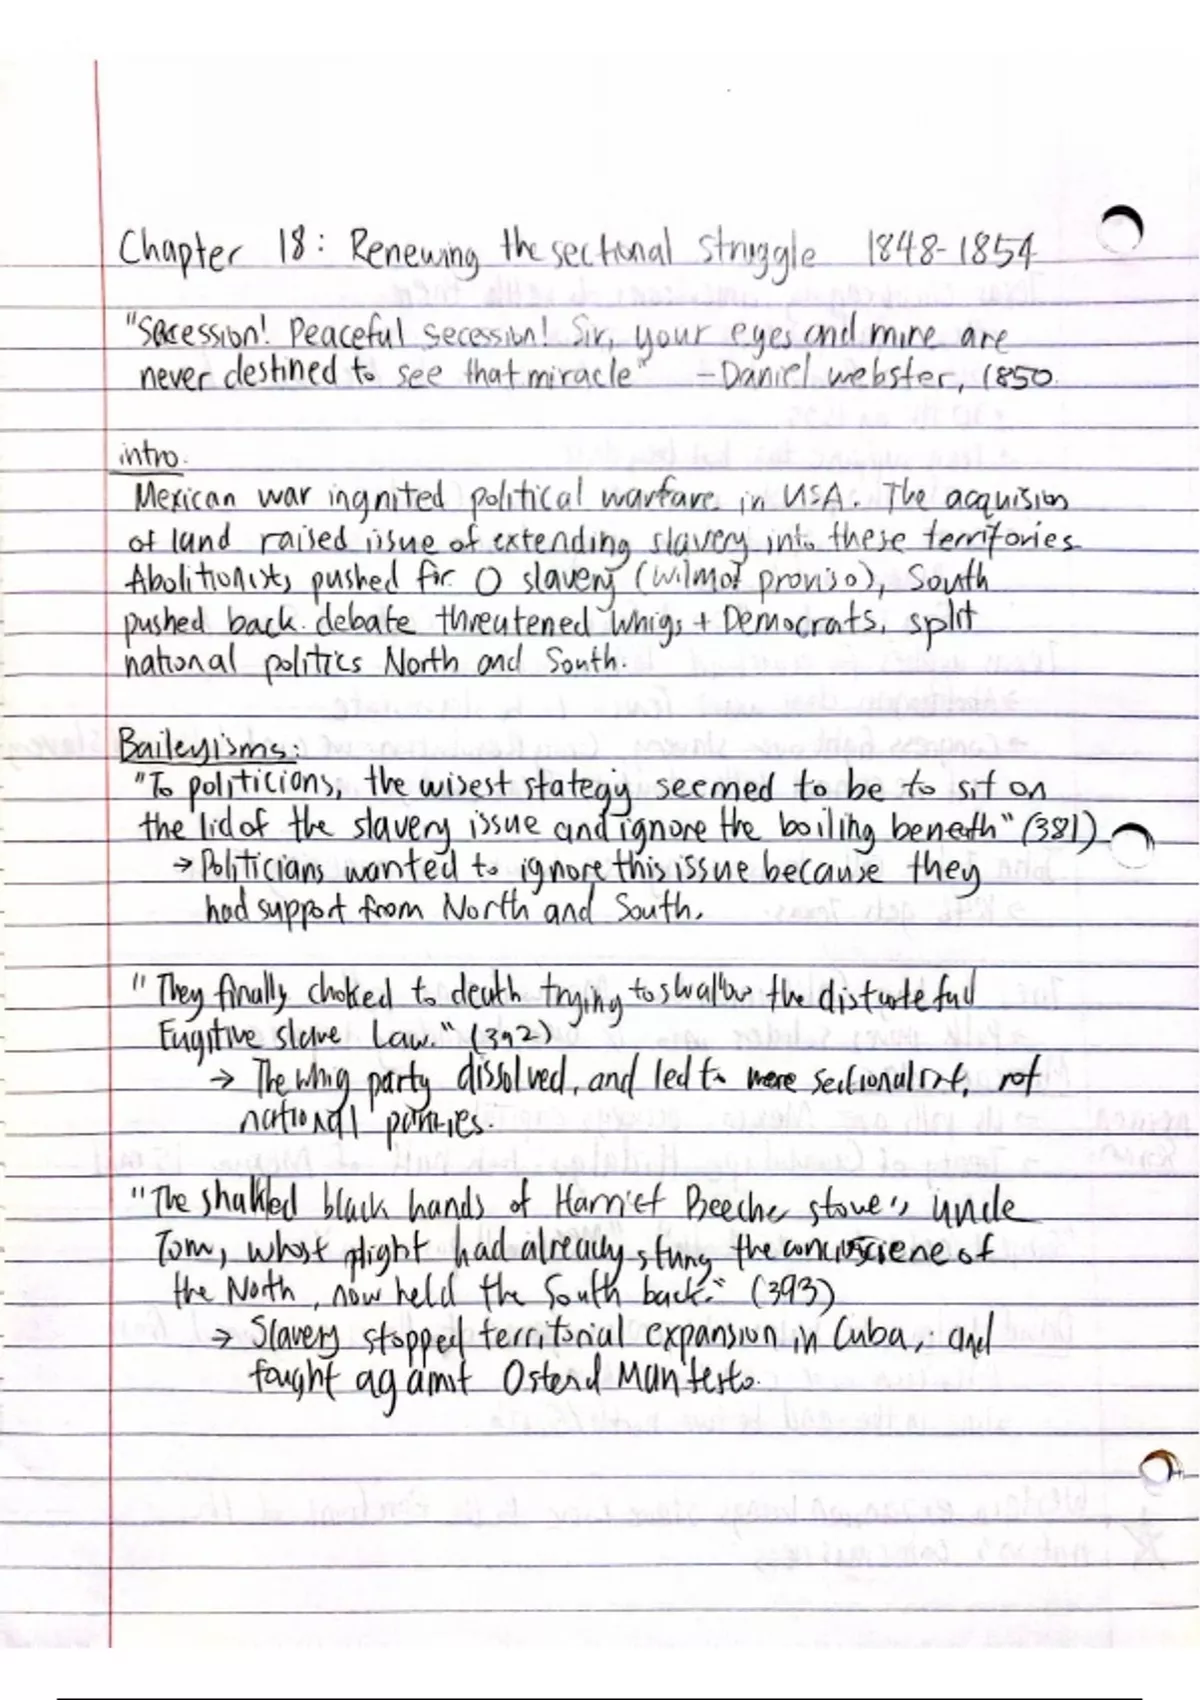 Chapter 18: Renewing the sectional struggle 1848-1854
"Secession! Peaceful secession! Sir, your eyes and mine are
never destined to see that miracle" -Daniel webster, 1850.
intro.
Mexican war ingnited political warfare in USA. The acquision
of land raised issue of extending slavery into these territories
Abolitionists pushed for 0 slavery (wilmot proviso), South
pushed back. debate threatened Whigs + Democrats, split
national politics North and South.
Baileyisms:
"To politicians, the wisest stategiy seemed to be to sit on
the lid of the slavery issue and ignore the boiling beneath" (381)
→ Politicians wanted to ignore this issue because they
had support from North and South.
"They finally choked to death trying to swallow the distasteful
Fugitive slave Law." (392)
→ The Whig party dissolved, and led to more sectionalist, not
national parties.
"The shakled black hands of Harriet Beecher stowe's uncle
Tom, whost plight had already stung the conciousciene of
the North, now held the South back." (393)
→ Slavery stopped territorial expansion in Cuba, and
fought against Ostend Manifesto.